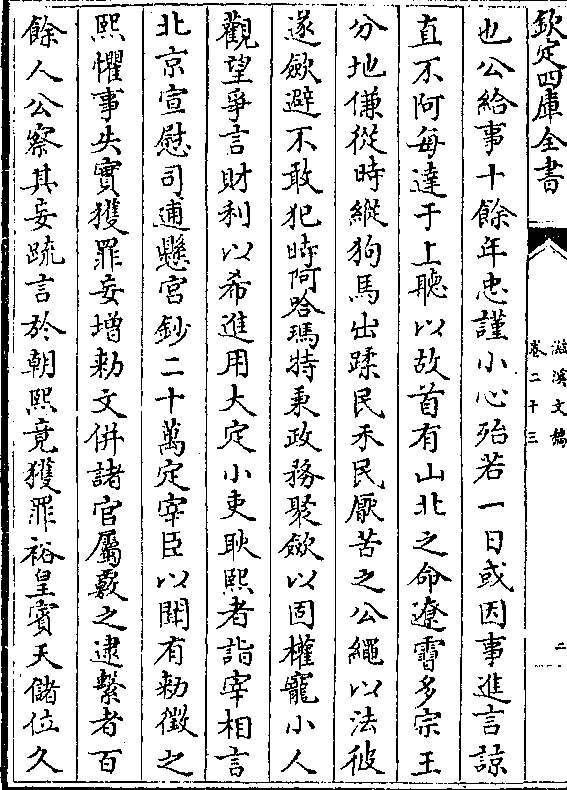 欽定四庫全書
滋溪文稿
卷二十三
二
也公給事十餘年忠謹小心殆若一日或因事進言諒
直不阿每達于上聽以故首有山北之命遼霫多宗王
分地傔從時縱狗馬出蹂民禾民厭苦之公繩以法彼
遂斂避不敢犯時阿哈瑪特秉政務聚斂以固權寵小人
觀望爭言財利以希進用大定小吏耿熙者詣宰相言
北京宣慰司逋懸官鈔二十萬定宰臣以聞有勅徵之
熙懼事失實獲罪妄增勅文併諸官屬覈之逮繫者百
餘人公察其妄疏言於朝熙竟獲罪裕皇賓天儲位久